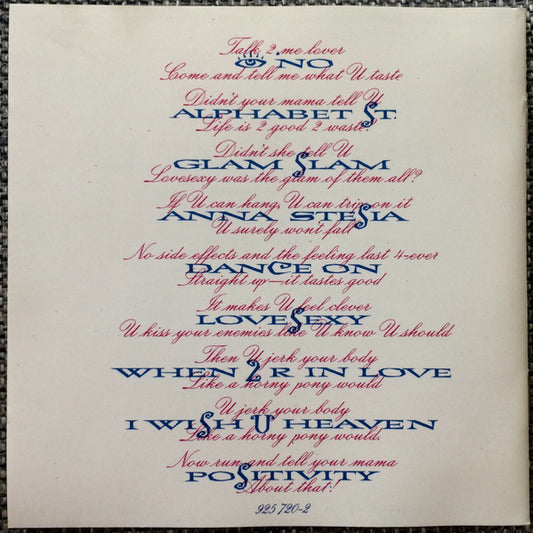 Talk 2 me lover
👁 NO
Come and tell me what U taste
Didn't your mama tell U
ALPHABET ST.
Life is 2 good 2 waste?
Didn't she tell U
GLAM SLAM
Lovesexy was the glam of them all?
If U can hang, U can trip on it
ANNA STESIA
U surely won't fall
No side effects and the feeling last 4-ever
DANCE ON
Straight up—it tastes good
It makes U feel clever
LOVESEXY
U kiss your enemies like U know U should
Then U jerk your body
WHEN 2 R IN LOVE
Like a horny pony would
U jerk your body
I WISH U HEAVEN
Like a horny pony would.
Now run and tell your mama
POSITIVITY
About that!
925 720-2